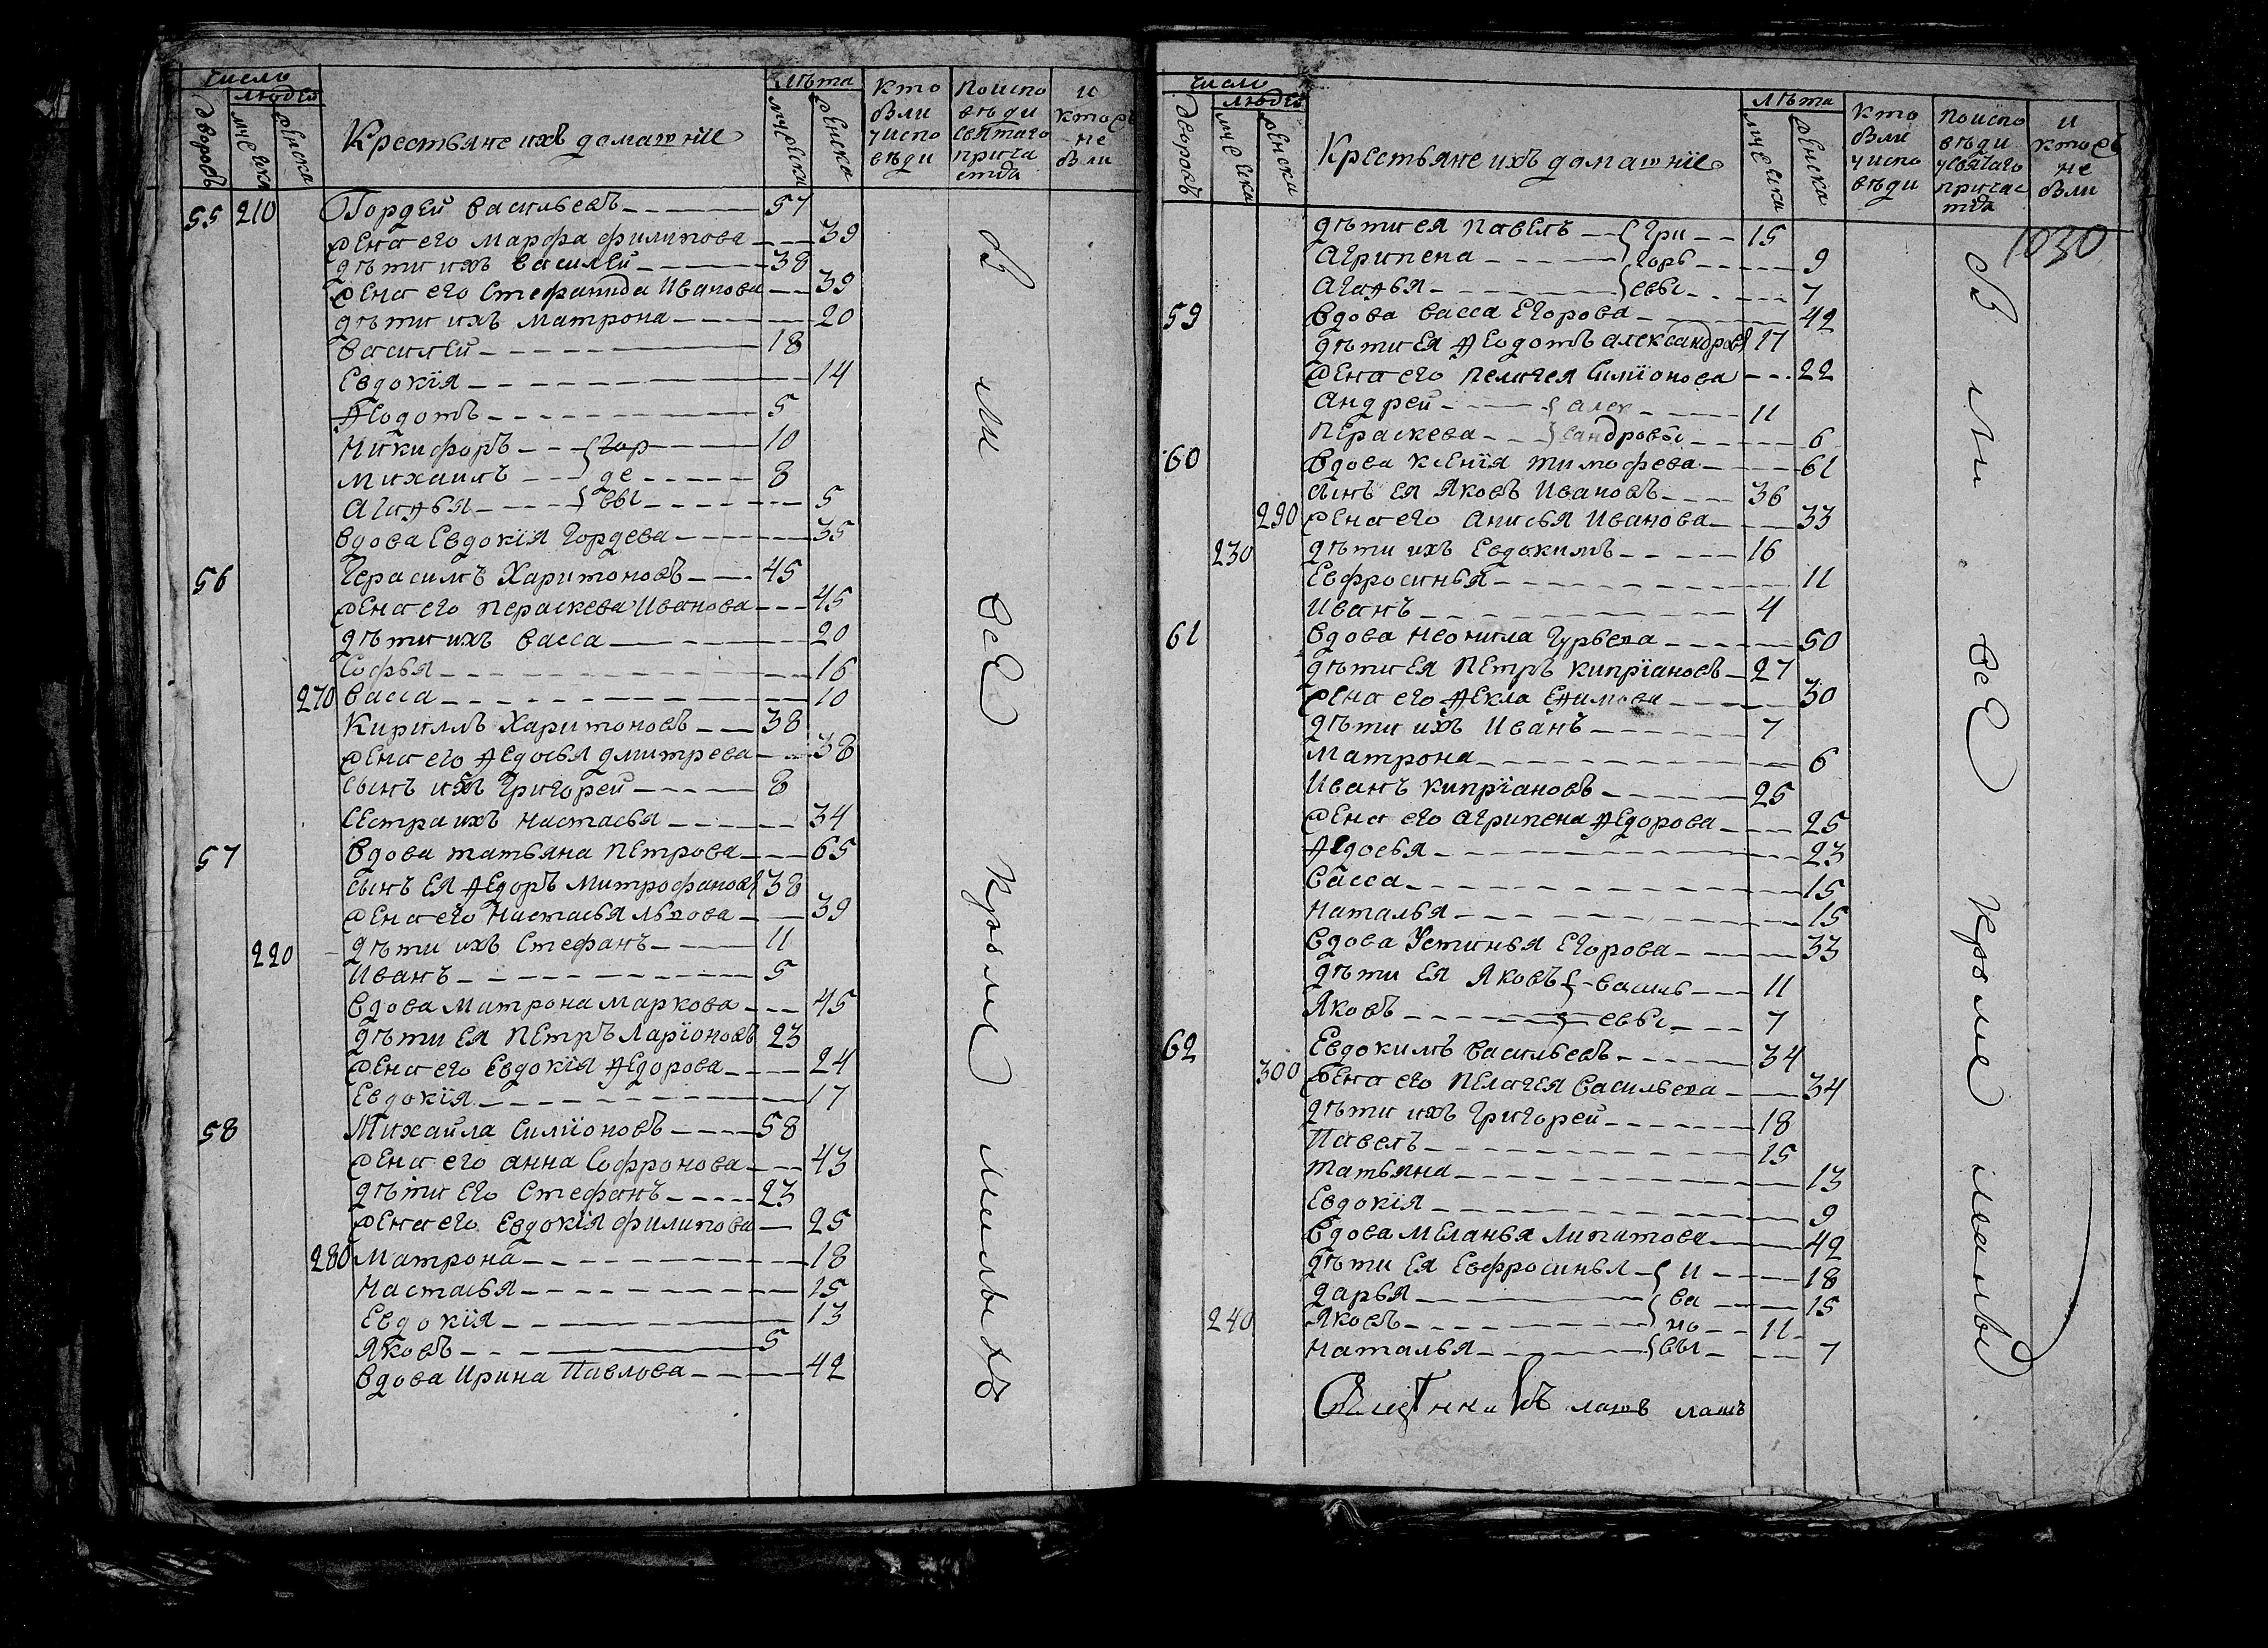 число
людей
лѣта
дворовъ
мужеска
женска
Крестьяне ихъ домашнїе
мужеска
женска
кто были у исповѣди
По исповѣди святаго причастiя
и кто ... не были
55 210 Гордей Васильевъ 57
жена его Марфа Филипова 39
дѣти ихъ Василей 38
жена его Стефанида Иванова 39
дѣти ихъ Матрона 20
Василей 18
Евдокїя 14
Ѳеодотъ 5
Никифоръ Гор 10
Михаилъ де 8
Агаѳья евы 5
вдова Евдокїя Гордева 35
56 Герасимъ Харитоновъ 45
жена его Пераскева Иванова 45
дѣти ихъ Васса 20
Софья 16
270 Васса 10
Кириллъ Харитоновъ 38
жена его Ѳедосья Дмитрева 38
сынъ ихъ Григорей 8
сестра ихъ Настасья 34
57 Вдова Татьяна Петрова 65
сынъ ея Ѳедоръ Митрофановъ 38
жена его Настасья Львова 39
220 дѣти ихъ Стефанъ 11
Иванъ 5
Вдова Матрона Маркова 45
дѣти ея Петръ Ларїоновъ 23
жена его Евдокїя Ѳедорова 24
Евдокїя 17
58 Михайла Симїоновъ 58
жена его Анна Софронова 43
дѣти его Стефанъ 23
жена его Евдокїя Филипова 25
280 Матрона 18
Настасья 15
Евдокїя 13
Яковъ 5
Вдова Ирина Павлова 42
Были все кроме малыхъ
число
людей
лѣта
дворовъ
мужеска
женска
Крестьяне ихъ домашнїе
мужеска
женска
кто были у исповѣди
По исповѣди у святаго причастiя
и кто ... не были
1030
дѣти ея Павелъ Гри 15
Агрипена горь 9
Агаѳья евы 7
59 Вдова Васса Егорова 42
дѣти ея Ѳеодотъ Александровъ 17
жена его Пелагея Симїонова 22
Андрей Алек 11
Пераскева сандровы 6
60 Вдова Ксенїя Тимофева 61
сынъ ея Яковъ Ивановъ 36
290 жена его Анисья Иванова 33
230 дѣти ихъ Евдокимъ 16
Евфросинья 11
Иванъ 4
61 Вдова Неонила Гурьева 50
дѣти ея Петръ Кипрїановъ 27
жена его Ѳекла Еѳимова 30
дѣти ихъ Иванъ 7
Матрона 6
Иванъ Кипрїановъ 25
жена его Агрипена Ѳедорова 25
Ѳедосья 23
Васса 15
Наталья 15
Вдова Устинья Егорова 33
дѣти ея Яковъ Василь 11
Яковъ евы 7
62 Евдокимъ Васильевъ 34
300 жена его Пелагея Васильева 34
дѣти ихъ Григорей 18
Павелъ 15
Татьяна 13
Евдокїя 9
Вдова Меланья Липатова 42
дѣти ея Евфросинья И 18
Дарья ва 15
240 Яковъ но 11
Наталья вы 7
Были все кроме малы